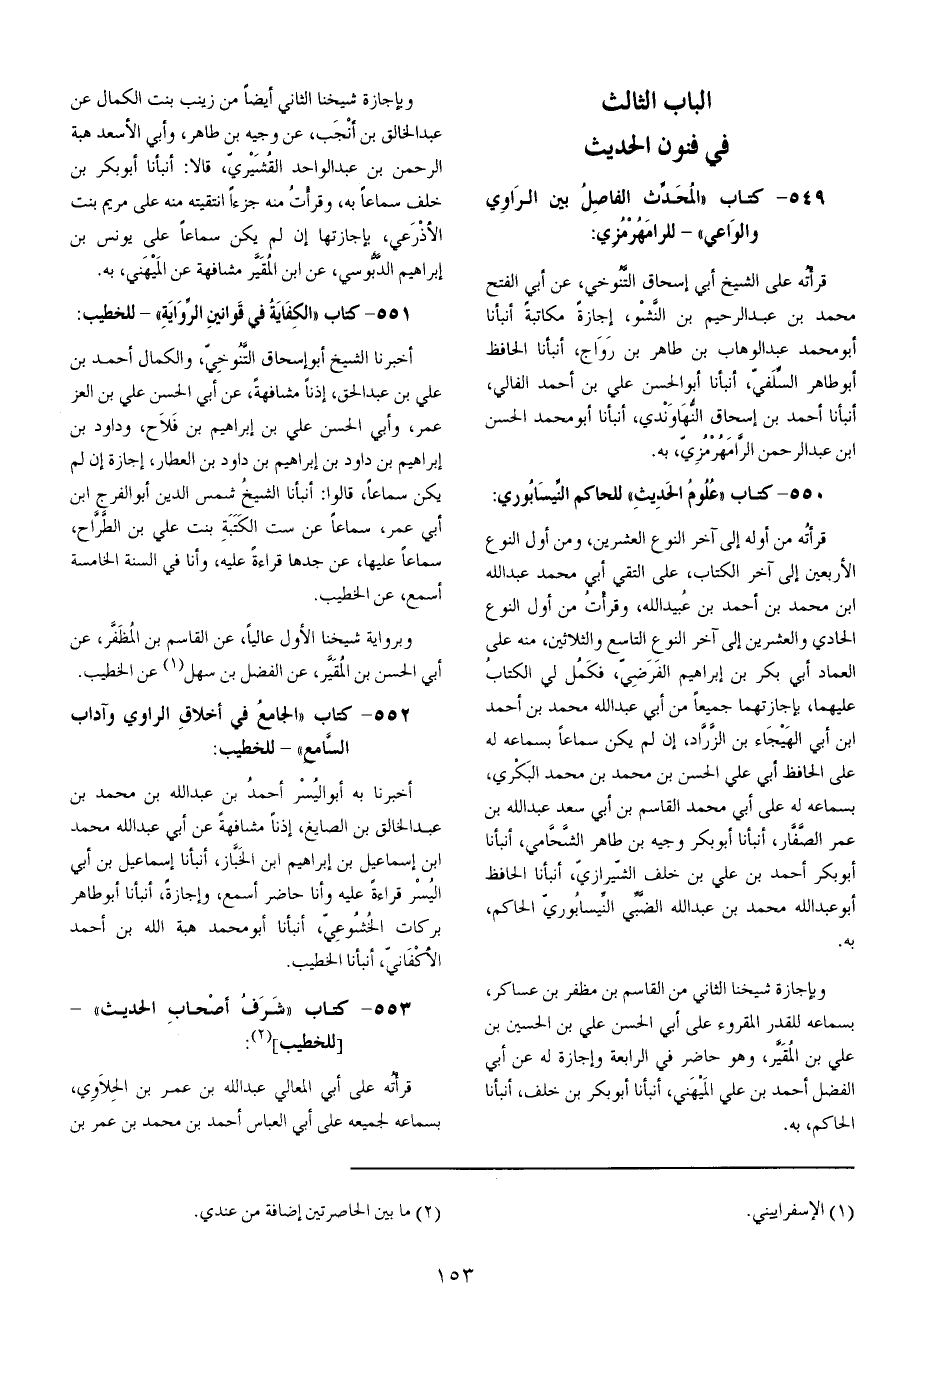 الباب الثالث
في فنون الحديث
٥٤٩- كتاب «المُحَدِّث الفاصِلُ بين الرَاوِي
والوَاعي» - للرامَهُرْمُزي:
قرأتُه على الشيخ أبي إسحاق التَّنُوخي، عن أبي الفتح
محمد بن عبدالرحيم بن النَّشْو، إجازةً مكاتبةً أنبأنا
أبومحمد عبدالوهاب بن طاهر بن رَوَاج، أنبأنا الحافظ
أبوطاهر السِّلَفيّ، أنبأنا أبوالحسن علي بن أحمد الفالي،
أنبأنا أحمد بن إسحاق النُّهَاوَنْدي، أنبأنا أبومحمد الحسن
ابن عبدالرحمن الرَّامَهُرْمُزِيّ، به.
٥٥٠- كتاب «عُلُومُ الحَديثِ» للحاكم النِّيسَابُوري:
قرأتُه من أوله إلى آخر النوع العشرين، ومن أول النوع
الأربعين إلى آخر الكتاب، على التقي أبي محمد عبدالله
ابن محمد بن أحمد بن عُبيدالله، وقرأتُ من أول النوع
الحادي والعشرين إلى آخر النوع التاسع والثلاثين، منه على
العماد أبي بكر بن إبراهيم الفَرَضِيّ، فكَمُل لي الكتابُ
عليهما، بإجازتهما جميعاً من أبي عبدالله محمد بن أحمد
ابن أبي الهَيْجَاء بن الزَّرَّاد، إن لم يكن سماعاً بسماعه له
على الحافظ أبي علي الحسن بن محمد بن محمد البَكْري،
بسماعه له على أبي محمد القاسم بن أبي سعد عبدالله بن
عمر الصَّفَّار، أنبأنا أبوبكر وجيه بن طاهر الشَّحَّامي، أنبأنا
أبوبكر أحمد بن علي بن خلف الشّيرازيّ، أنبأنا الحافظ
أبوعبدالله محمد بن عبدالله الضبِّي النِّيسابوريّ الحاكم،
به.
وبإجازة شيخنا الثاني من القاسم بن مظفر بن عساكر،
بسماعه للقدر المقروء على أبي الحسن علي بن الحسين بن
علي بن المُقَيَّر، وهو حاضر في الرابعة وإجازة له عن أبي
الفضل أحمد بن علي المَيْهَني، أنبأنا أبوبكر بن خلف، أنبأنا
الحاكم، به.
وبإجازة شيخنا الثاني أيضاً من زينب بنت الكمال عن
عبدالخالق بن أنْجَب، عن وجيه بن طاهر، وأبي الأسعد هبة
الرحمن بن عبدالواحد القُشَيْريّ، قالا: أنبأنا أبوبكر بن
خلف سماعاً به، وقرأتُ منه جزءاً انتقيته منه على مريم بنت
الأذْرَعي، بإجازتها إن لم يكن سماعاً على يونس بن
إبراهيم الدَّبُّوسي، عن ابن المُقَيَّر مشافهة عن المَيْهَني، به.
٥٥١- كتاب «الكِفَايَةُ في قَوانينِ الرِّوَايَةِ» - للخطيب:
أخبرنا الشيخ أبوإسحاق التَّنُوخيّ، والكمال أحمد بن
علي بن عبدالحق، إذناً مشافهةً، عن أبي الحسن علي بن العز
عمر، وأبي الحسن علي بن إبراهيم بن فَلَاح، وداود بن
إبراهيم بن داود بن إبراهيم بن داود بن العطار، إجازة إن لم
يكن سماعاً، قالوا: أنبأنا الشيخُ شمس الدين أبوالفرج ابن
أبي عمر، سماعاً عن ست الكَتَبَةِ بنت علي بن الطَّرَّاح،
سماعاً عليها، عن جدها قراءةً عليه، وأنا في السنة الخامسة
أسمع، عن الخطيب.
وبرواية شيخنا الأول عالياً، عن القاسم بن المُظَفَّر، عن
أبي الحسن بن المُقَيَّر، عن الفضل بن سهل(١) عن الخطيب.
٥٥٢- كتاب «الجامعُ في أخلاقِ الراوي وآداب
السَّامع» - للخطيب:
أخبرنا به أبواليُسْر أحمدُ بن عبدالله بن محمد بن
عبدالخالق بن الصايغ، إذناً مشافهةً عن أبي عبدالله محمد
ابن إسماعيل بن إبراهيم ابن الخَبَّاز، أنبأنا إسماعيل بن أبي
اليُسْر قراءةً عليه وأنا حاضر أسمع، وإجازة، أنبأنا أبوطاهر
بركات الخُشُوعيّ، أنبأنا أبومحمد هبة الله بن أحمد
الأكْفَانيّ، أنبأنا الخطيب.
٥٥٣- كتاب «شَرَفُ أصْحابِ الحديث» -
[للخطيب](٢):
قرأتُه على أبي المعالي عبدالله بن عمر بن الحِلَاوِي،
بسماعه لجميعه على أبي العباس أحمد بن محمد بن عمر بن
(١) الإسفراييني.
(٢) ما بين الحاصرتين إضافة من عندي.
١٥٣